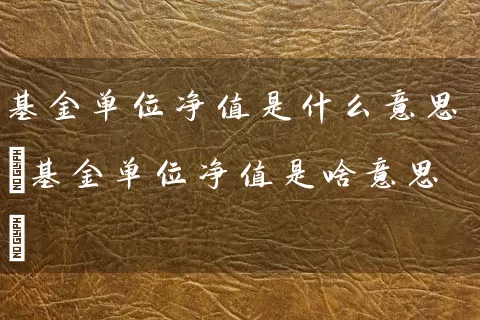 基金单位净值是什么意思
基金单位净值是啥意思